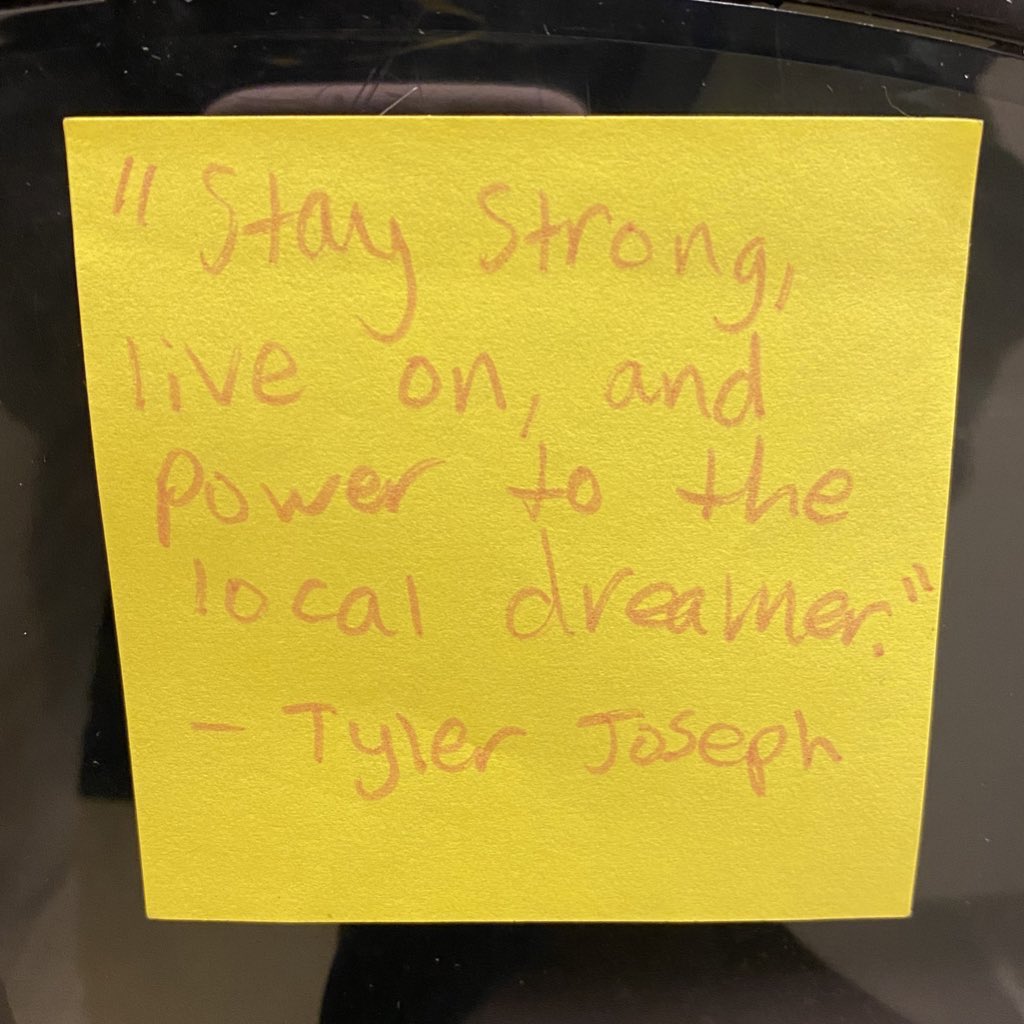 "Stay Strong,
live on, and
power to the
local dreamer."
- Tyler Joseph